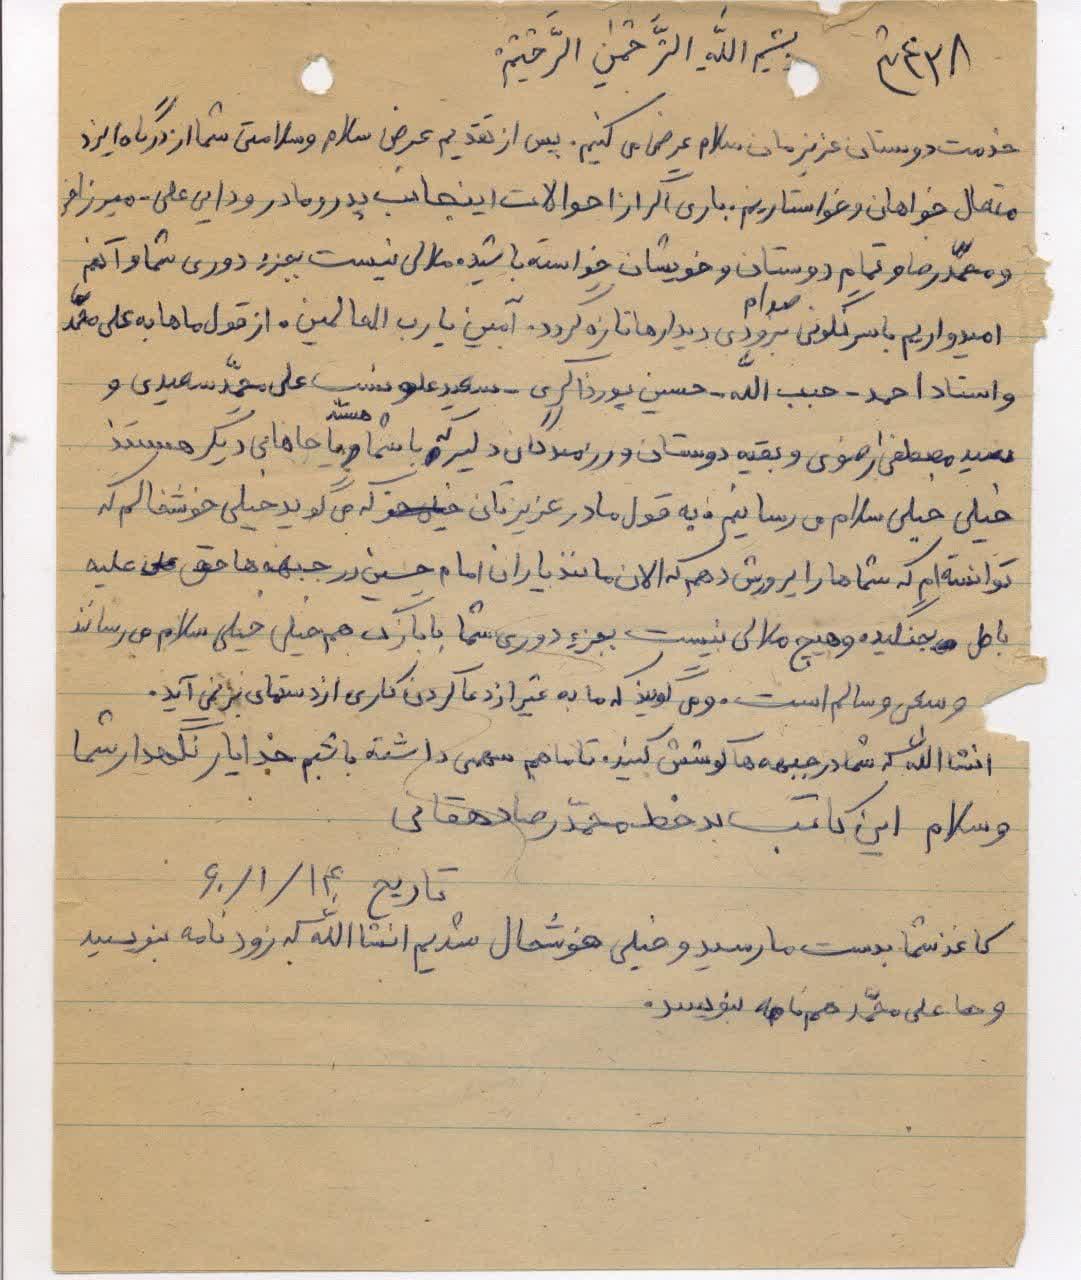 بِسْمِ اللَّهِ الرَّحْمٰنِ الرَّحِيْمْ
خدمت دوستان عزیزمان سلام عرض می کنیم. پس از تقدیم عرض سلام و سلامتی شما از درگاه ایزد
متعال خواهان و خواستاریم. باری اگر از احوالات اینجانب پدر و مادر و دایی علی - میرزا
و محمّد رضا و تمام دوستان و خویشان خواسته باشید ملالی نیست بجزء دوری شما و آنهم
امیدواریم با سرنگونی صدام بزودی دیدارها تازه گردد. آمین یا رب العالمین. از قول ماها به علی محمّد
و استاد احمد - حبیب اللّه - حسین پورذاکری - سعید علی محمّد سعیدی و
سید مصطفی رضوی و بقیه دوستان و رزمندگان دیگر که با شما هستند و یا جاهای دیگر هستند
خیلی خیلی سلام می رسانیم. به قول مادر عزیزتان که می گوید خیلی خوشحالم که
توانسته ام که شماها را پرورش دهم که الان مانند یاران امام حسین در جبهه ها حق علیه
باطل بجنگید. و هیچ ملالی نیست بجزء دوری شما بابابزرگ هم خیلی خیلی سلام می رسانند
و سالم است. و می گویند که ما به غیر از دعا کردن کاری از دستمان بر نمی آید.
انشا اللّه که شما در جبهه ها کوشش کنید. تا ما هم سهمی داشته باشیم خدا یار نگهدار شما
وسلام این کاتب بدخط محمّد رضا دهقانی
تاریخ ۶۰/۱/۱۴
کاغذ شما بدست ما رسید و خیلی خوشحال شدیم انشا اللّه که زود نامه بنویسید
و علی محمّد هم نامه بنویسد.